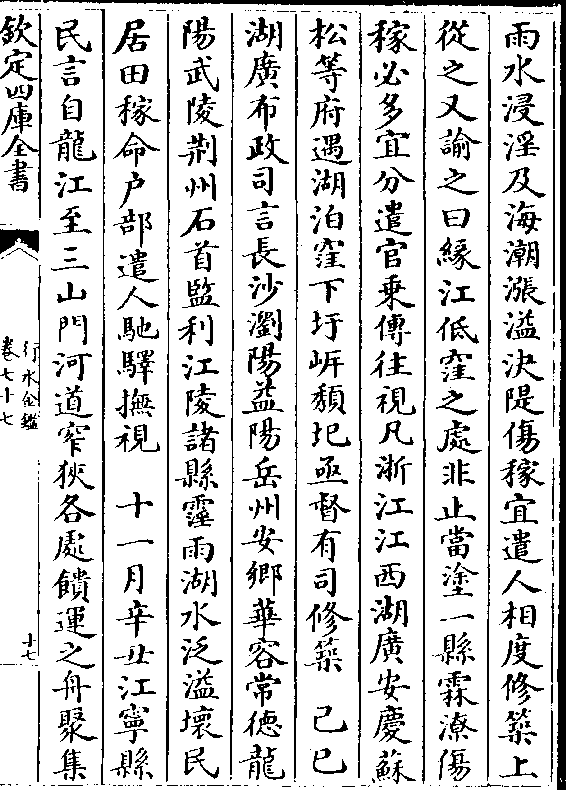 雨水浸淫及海潮漲溢決隄傷稼宜遣人相度修築上
從之又諭之曰緣江低窪之處非止當塗一縣霖潦傷
稼必多宜分遣官乗傳往視凡浙江江西湖廣安慶蘇
松等府遇湖泊窪下圩㟁頽圮亟督有司修築　己巳
湖廣布政司言長沙瀏陽益陽岳州安鄉華容常德龍
陽武陵荆州石首監利江陵諸縣霪雨湖水泛溢壞民
居田稼命户部遣人馳驛撫視　十一月辛丑江寧縣
民言自龍江至三山門河道窄狹各處饋運之舟聚集
欽定四庫全書
行水金鑑
卷七十七
十七